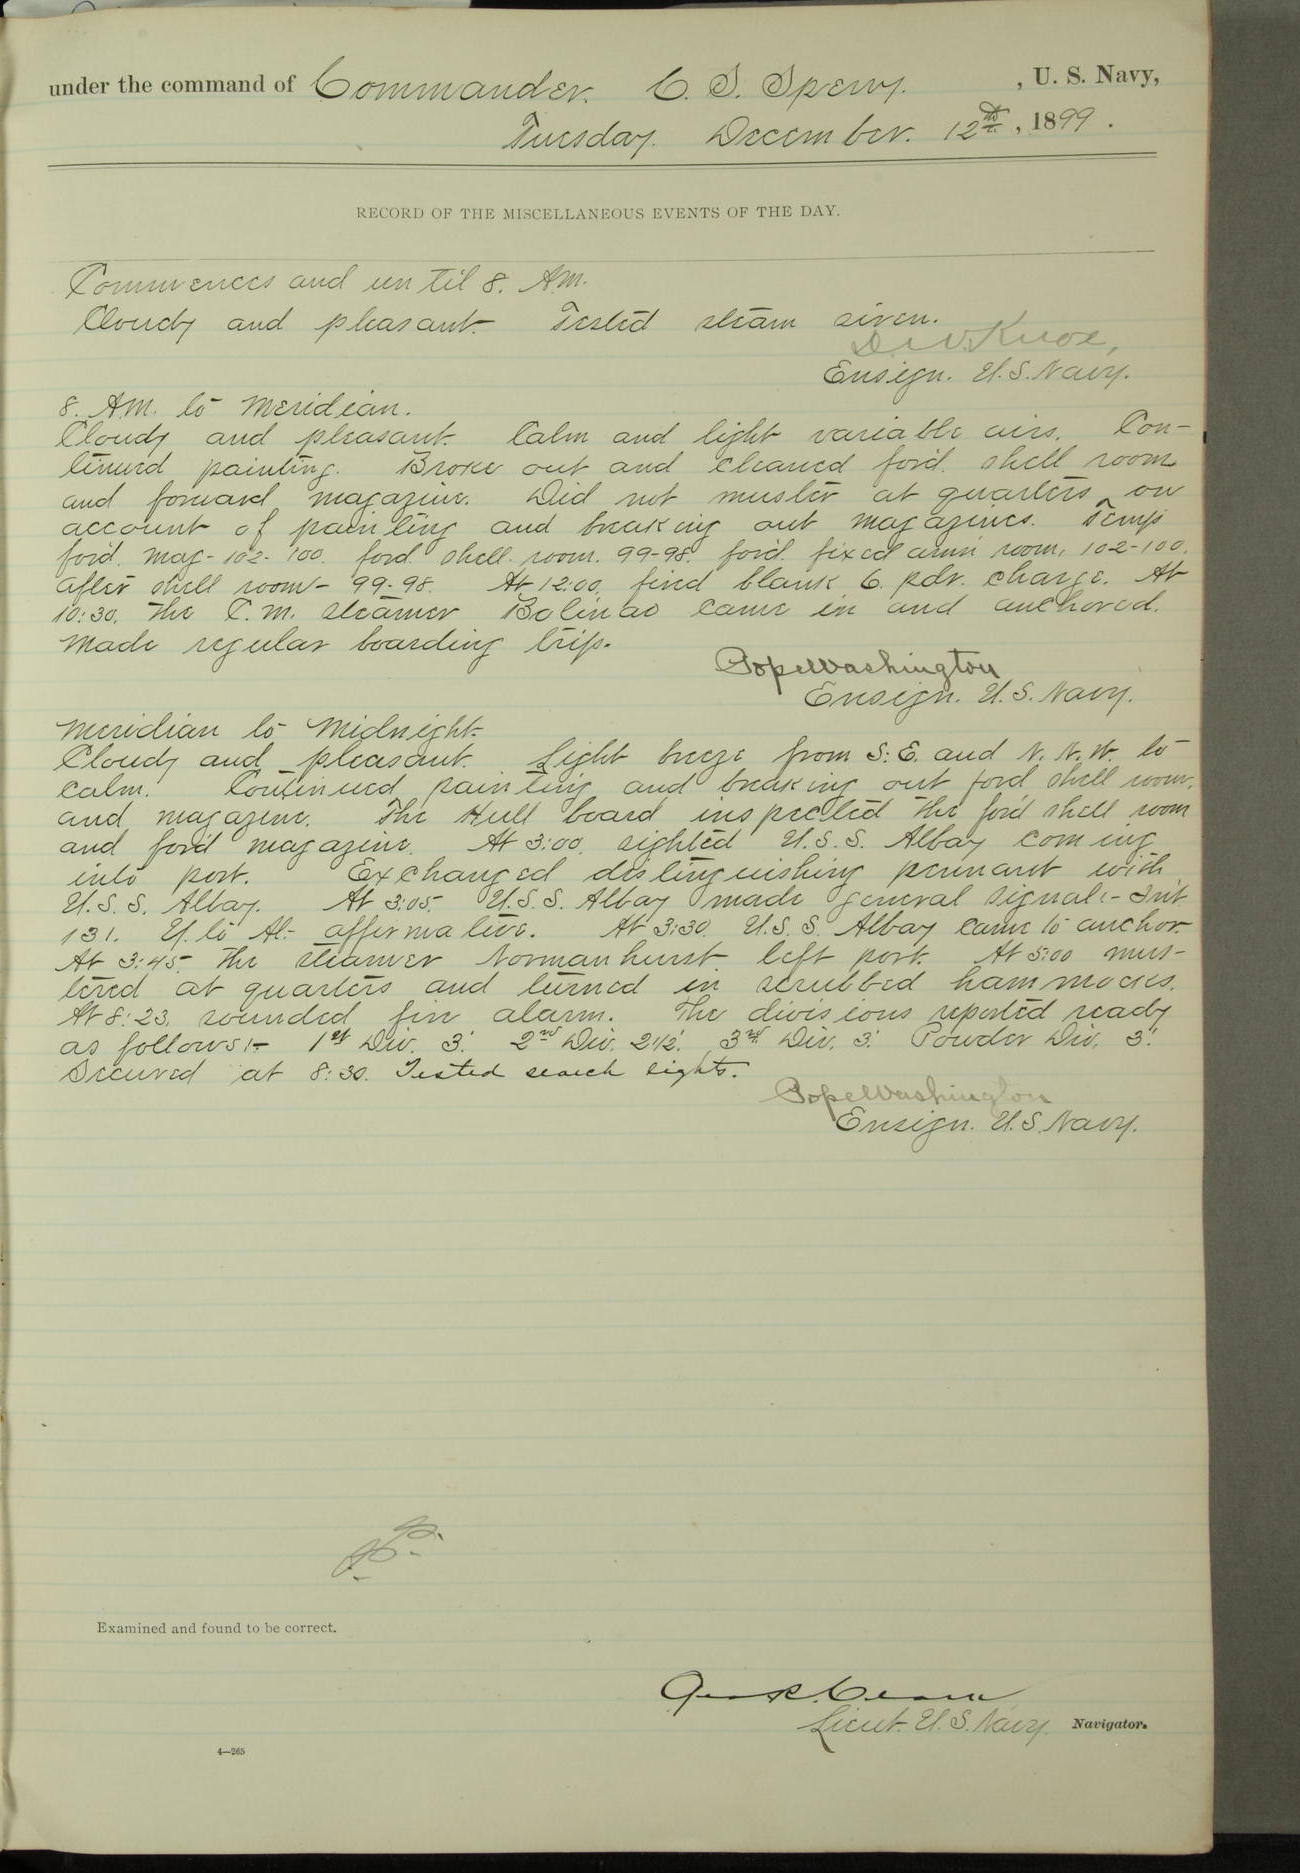 under the command of Commander. C. S. Sperry. , U. S. Navy,
Tuesday. December. 12th, 1899.
RECORD OF THE MISCELLANEOUS EVENTS OF THE DAY.
Commences and until 8. A.M.
Cloudy and pleasant. Tested steam siren.
D.W. Knox,
Ensign. U.S. Navy.
8. A.M. to Meridian.
Cloudy and pleasant. Calm and light variable airs. Con-
tinued painting. Broke out and cleaned for'd. shell room
and forward magazine. Did not muster at quarters on
account of painting and breaking out magazines. Temps
for'd. mag- 102-100. for'd. shell room. 99-98. for'd. fixed amn room, 102-100.
after shell room- 99-98. At 12:00, fired blank 6. pdr. charge. At
10:30, the C.M. steamer Bolinao came in and anchored.
Made regular boarding trip.
Pope Washington
Ensign. U.S. Navy.
Meridian to Midnight.
Cloudy and pleasant. Light breeze from S: E. and N. N. W. to
calm. Continued painting and breaking out for'd shell room.
and magazine. The Hull board inspected the for'd shell room
and for'd magazine. At 3:00, sighted U.S.S. Albay coming
into port. Exchanged distinguishing pennant with
U.S.S. Albay. At 3:05. U.S.S. Albay made general signal:- Int.
131. U. to Al:- affirmative. At 3:30. U.S.S. Albay came to anchor.
At 3:45, the steamer Norman hurst left port. At 5:00 mus-
tered at quarters and turned in scrubbed hammocks.
At 8:23, sounded fire alarm. The divisions reported ready
as follows:- 1st Div. 3'. 2nd Div. 2 1/2'. 3rd Div. 3'. Powder Div. 3'.
Secured at 8:30. Tested search lights.
Pope Washington
Ensign. U.S. Navy.
Examined and found to be correct.
Lieut. U.S. Navy. Navigator.
4—265